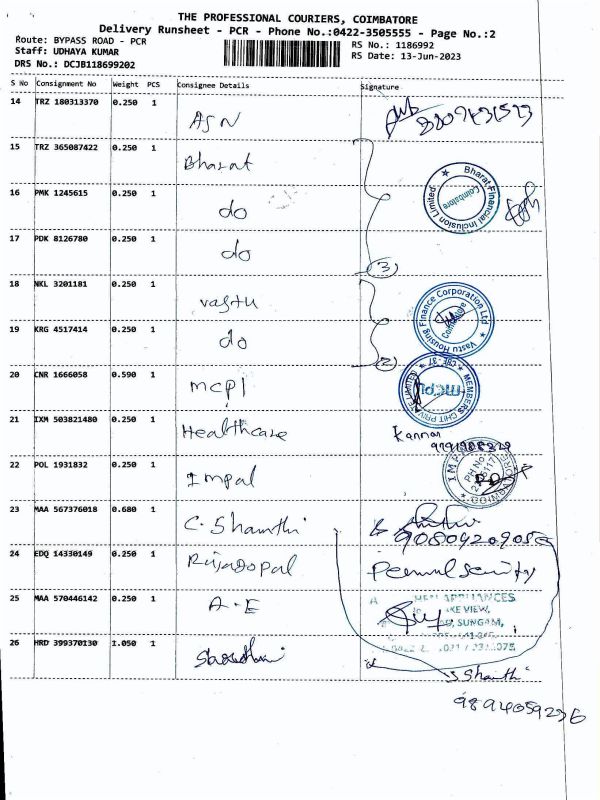 THE PROFESSIONAL COURIERS, COIMBATORE
Delivery Runsheet - PCR - Phone No.:0422-3505555 - Page No.:2
Route: BYPASS ROAD - PCR
RS No.: 1186992
Staff: UDHAYA KUMAR
RS Date: 13-Jun-2023
DRS No.: DCJB118699202
S No Consignment No Weight PCS Consignee Details Signature
14 TRZ 180313370 0.250 1
ASN
15 TRZ 365087422 0.250 1
Bharat
Bharat Financial Inclusion Limited * Coimbatore
16 PMK 1245615 0.250 1
do
17 PDK 8126780 0.250 1
do
(3)
18 NKL 3201181 0.250 1
Vastu
Vastu Housing Finance Corporation Ltd * Coimbatore
19 KRG 4517414 0.250 1
do
(2)
20 CNR 1666058 0.590 1
mcpl
MEMBERS CHIT PRIVATE LIMITED * CBE-37 * MCPL
21 IXM 503821480 0.250 1
Healthcare
Kannan
22 POL 1931832 0.250 1
Impal
PH No
COIMBATORE
23 MAA 567376018 0.680 1
C. Shanthi
24 EDQ 14330149 0.250 1
Rajagopal
25 MAA 570446142 0.250 1
A.E
APPLIANCES
LAKE VIEW,
SUNGAM,
26 HRD 399370130 1.050 1
Shanthi
9894059236